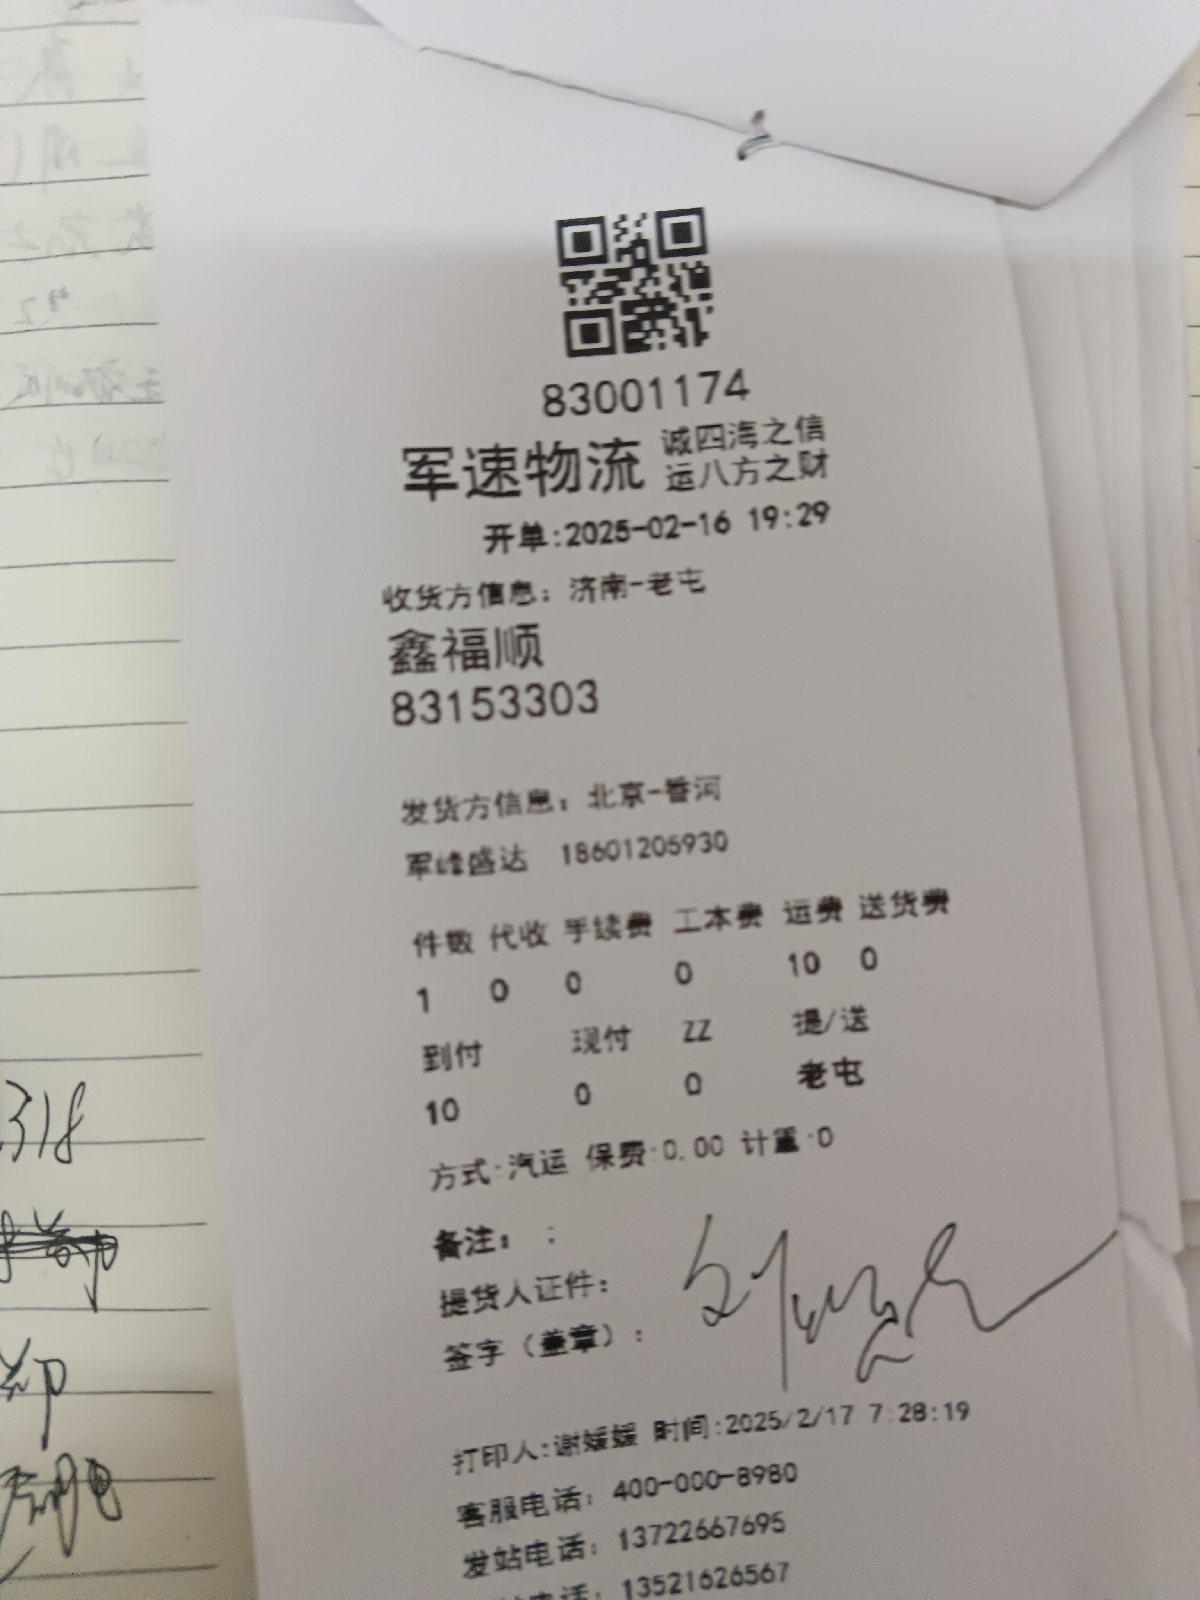 83001174
军速物流 诚四海之信
运八方之财
开单:2025-02-16 19:29
收货方信息：济南-老屯
鑫福顺
83153303
发货方信息：北京-香河
军峰盛达 18601205930
件数 代收 手续费 工本费 运费 送货费
1 0 0 0 10 0
到付 现付 ZZ 提/送
10 0 0 老屯
方式:汽运 保费:0.00 计重:0
备注： :
提货人证件：
签字（盖章）：
打印人:谢媛媛 时间:2025/2/17 7:28:19
客服电话：400-000-8980
发站电话：13722667695
电话：13521626567
318